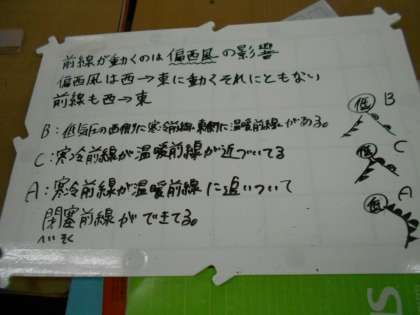 前線が動くのは偏西風の影響
偏西風は西→東に動くそれにともない
前線も西→東
B:低気圧の西側に寒冷前線東側に温暖前線がある。
C:寒冷前線が温暖前線が近づいてる
A:寒冷前線が温暖前線に追いついて
閉塞前線ができてる。
へいそく
低 B
低 C
低 A